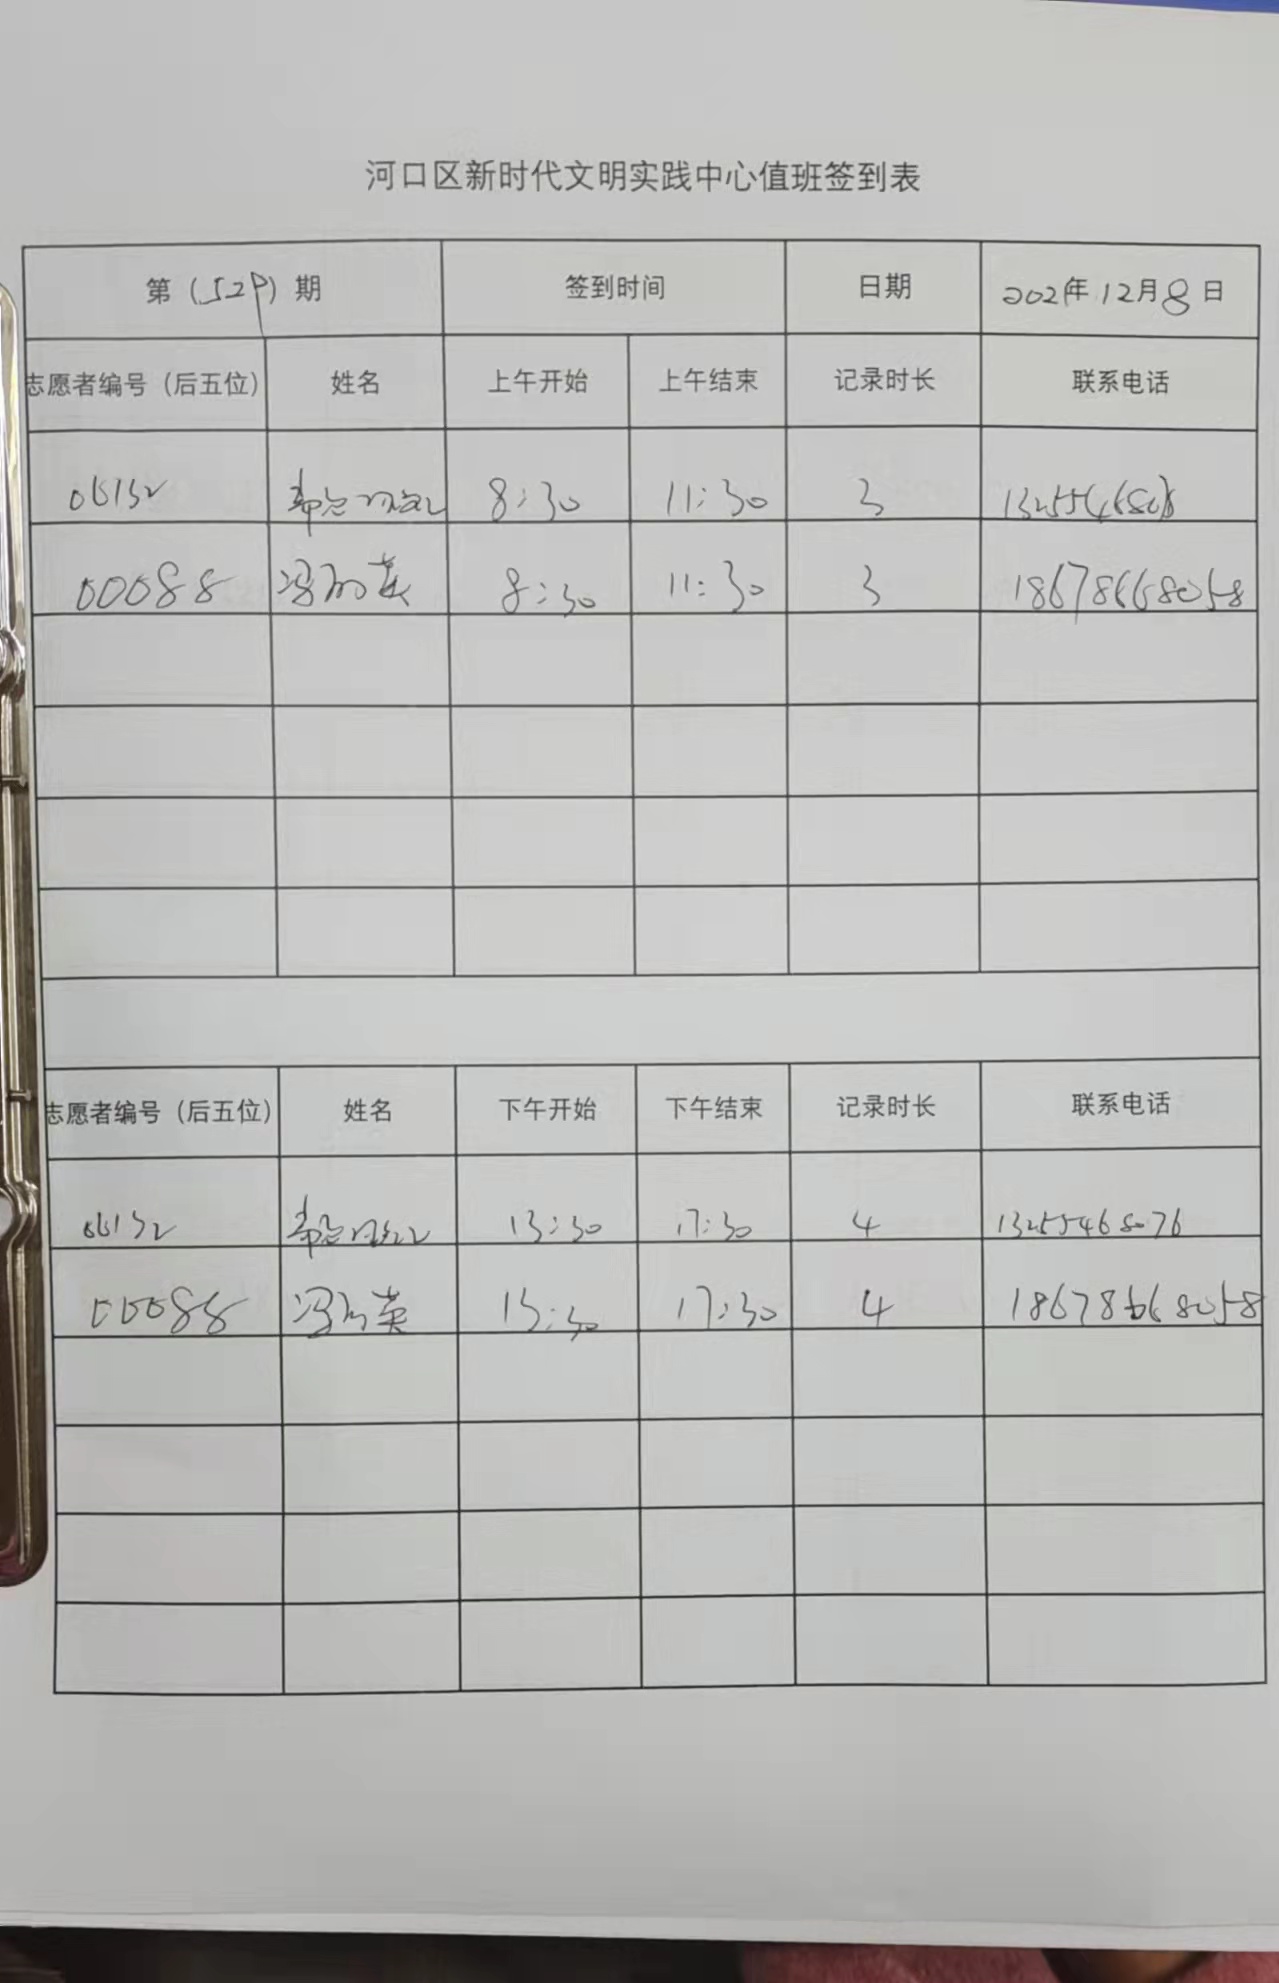 河口区新时代文明实践中心值班签到表
第（529）期 签到时间 日期 2021年12月8日
志愿者编号（后五位） 姓名 上午开始 上午结束 记录时长 联系电话
06132 8:30 11:30 3
00088 冯 英 8:30 11:30 3 18678668058
志愿者编号（后五位） 姓名 下午开始 下午结束 记录时长 联系电话
06132 13:30 17:30 4 13255468076
00088 冯 英 13:30 17:30 4 18678668058